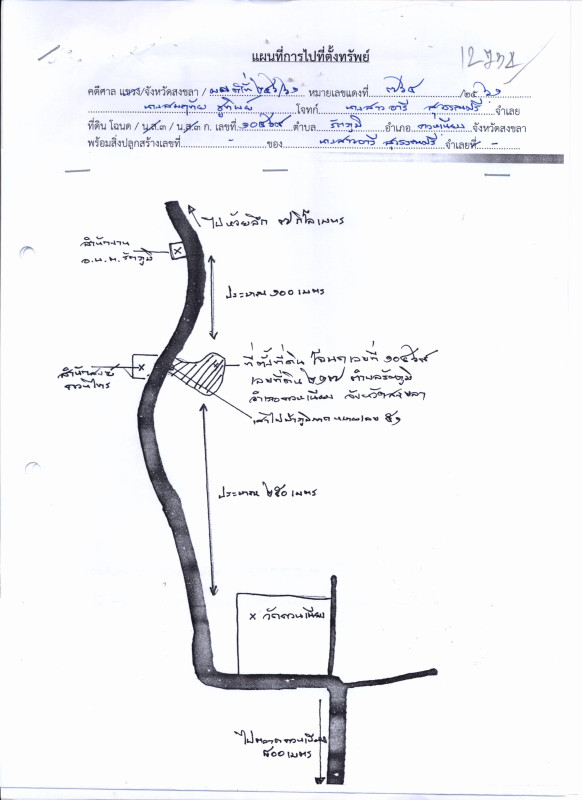 แผนที่การไปที่ตั้งทรัพย์
คดีศาล แพ่ง/จังหวัดสงขลา / หมายเลขแดงที่ ๗๖๔ /๒๕๖๑
โจทก์ นางสาว อารี จำเลย
ที่ดิน โฉนด / น.ส.๓ / น.ส.๓ ก. เลขที่ ๑๐๕๖๙ ตำบล รัตภูมิ อำเภอ ควนเนียง จังหวัดสงขลา
พร้อมสิ่งปลูกสร้างเลขที่ - ของ นางสาวอารี จำเลยที่ -
ไปห้วยลึก ๗ กิโลเมตร
สำนักงาน
อ.บ.ต. รัตภูมิ
ประมาณ ๑๐๐ เมตร
ที่ตั้งที่ดิน โฉนดเลขที่ ๑๐๕๖๙
เลขที่ดิน ๒๑๗ ตำบลรัตภูมิ
อำเภอควนเนียง จังหวัดสงขลา
สำนักสงฆ์
ควนไทร
เสาไฟฟ้าภูมิภาค หมายเลข ๕๑
ประมาณ ๒๕๐ เมตร
x วัดควนเนียง
ไปตลาดควนเนียง
๕๐๐ เมตร